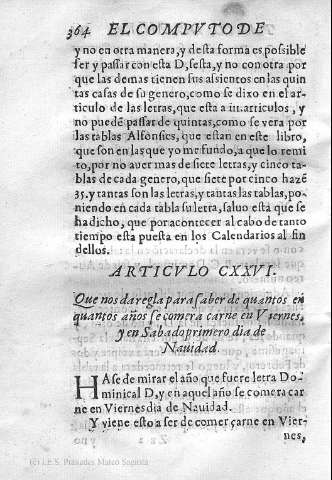 364 EL COMPVTO DE
y no en otra manera, y desta forma es possible
ser y passar con esta D, sesta, y no con otra por
que las demas tienen sus assientos en las quin
tas casas de su genero, como se dixo en el ar-
ticulo de las letras, que esta a articulos, y
no puedẽ passar de quintas, como se vera por
las tablas Alfonsies, que estan en este libro,
que son en las que yo me fundo, a que lo remi
to, por no auer mas de siete letras, y cinco ta-
blas de cada genero, que siete por cinco hazẽ
35. y tantas son las letras, y tantas las tablas, po-
niendo en cada tabla su letra, saluo esta que se
ha dicho, que por acontecer al cabo de tanto
tiempo esta puesta en los Calendarios al fin
dellos.
ARTICVLO CXXVI.
Que nos da regla para saber de quantos en
quantos años se comera carne en Viernes,
y en Sabado primero dia de
Nauidad.
HAse de mirar el año que fuere letra Do-
minical D, y en aquel año se comera car
ne en Viernes dia de Nauidad.
Y viene esto a ser de comer carne en Vier-
nes,
(c) I.E.S. Práxedes Mateo Sagasta